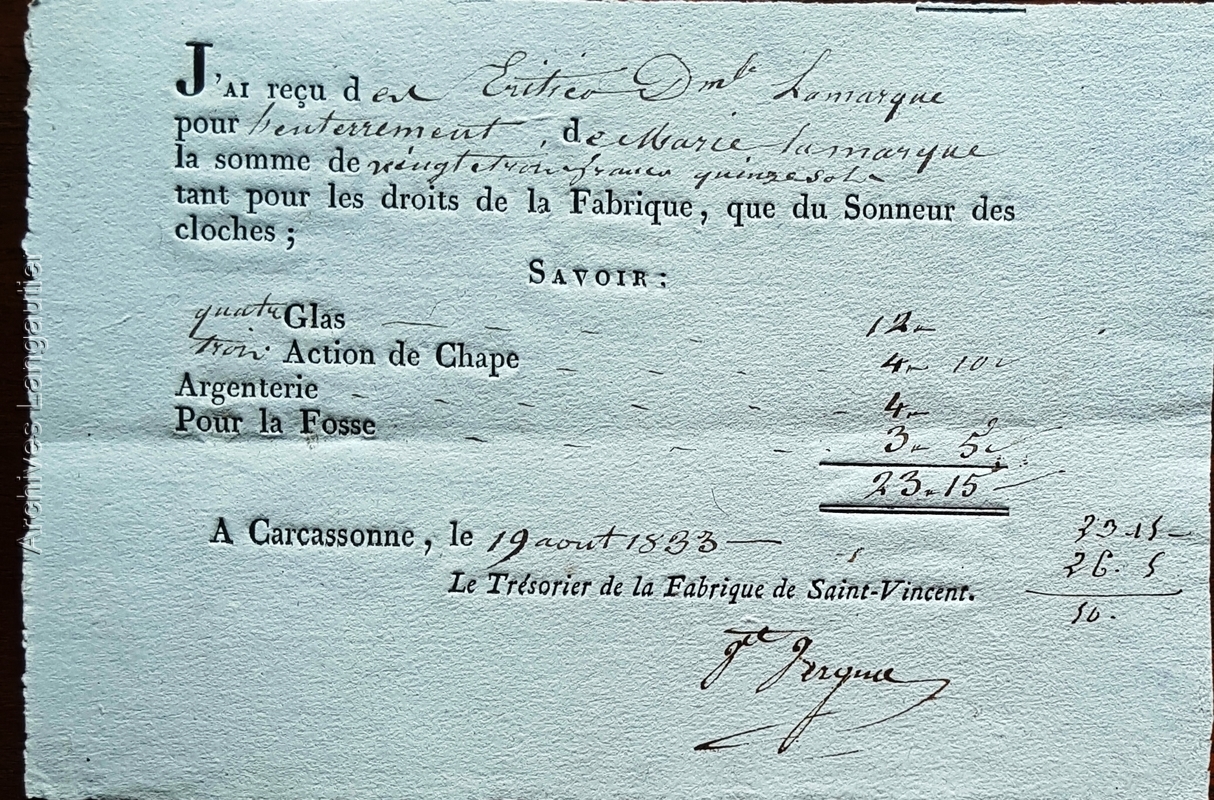 J'AI reçu des Eritiers Dmle Lamarque
pour l'enterrement, de Marie lamarque
la somme de vingt trois francs quinze sols
tant pour les droits de la Fabrique, que du Sonneur des
cloches ;
SAVOIR :
quatre Glas 12
trois Action de Chape 4 10
Argenterie 4
Pour la Fosse 3 5
23 15
A Carcassonne, le 19 aout 1833
23 15
26. 5
50.
Le Trésorier de la Fabrique de Saint-Vincent.
Archives Langautier